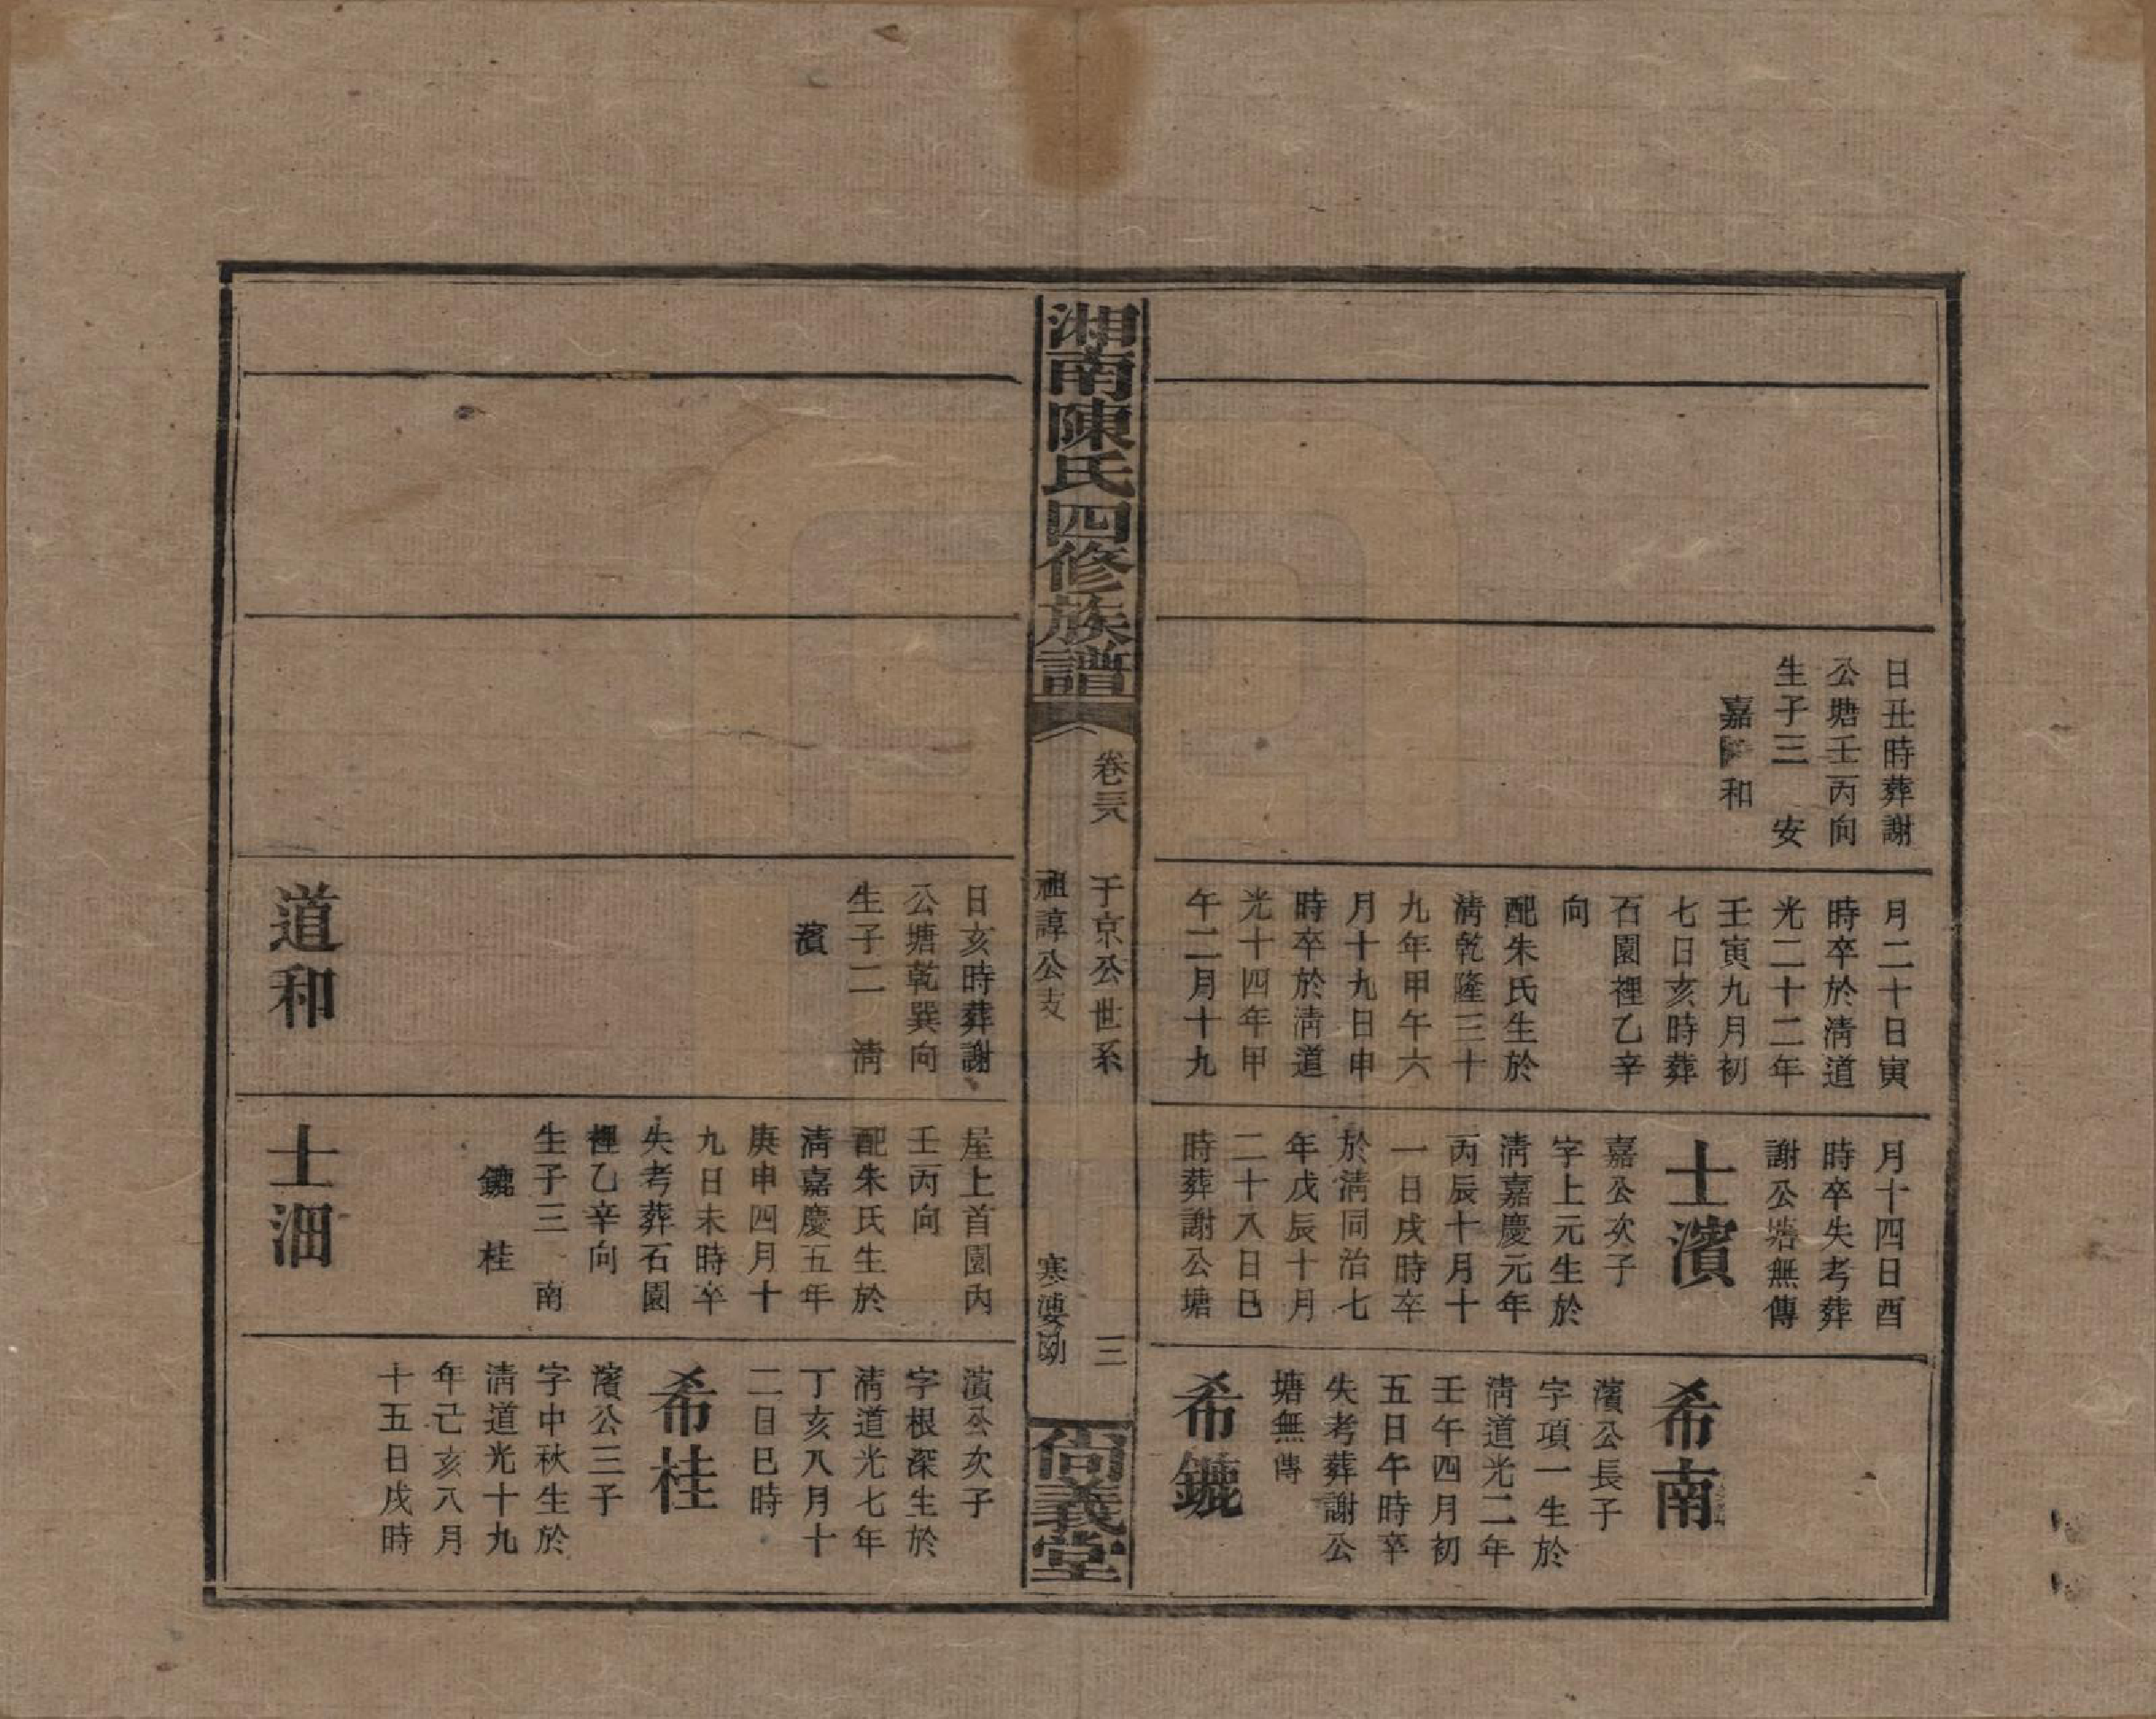 日丑時葬謝
公塘壬丙向
生子三　安
嘉　和
月二十日寅
時卒於淸道
光二十二年
壬寅九月初
七日亥時葬
石園裡乙辛
向
配朱氏生於
淸乾隆三十
九年甲午六
月十九日申
時卒於淸道
光十四年甲
午二月十九
月十四日酉
時卒失考葬
謝公塘無傳
士濱
嘉公次子
字上元生於
淸嘉慶元年
丙辰十月十
一日戌時卒
於淸同治七
年戊辰十月
二十八日巳
時葬謝公塘
希南
濱公長子
字項一生於
淸道光二年
壬午四月初
五日午時卒
失考葬謝公
塘無傳
希鑣
湘南陳氏四修族譜
卷三六
于京公世系
祖諄公支
三
寒婆坳
尙義堂
日亥時葬謝
公塘乾巽向
生子二　淸
濱
道和
屋上首園内
壬丙向
配朱氏生於
淸嘉慶五年
庚申四月十
九日未時卒
失考葬石園
裡乙辛向
生子三　南
鑣　桂
士沺
濱公次子
字根深生於
淸道光七年
丁亥八月十
二日巳時
希桂
濱公三子
字中秋生於
淸道光十九
年己亥八月
十五日戌時